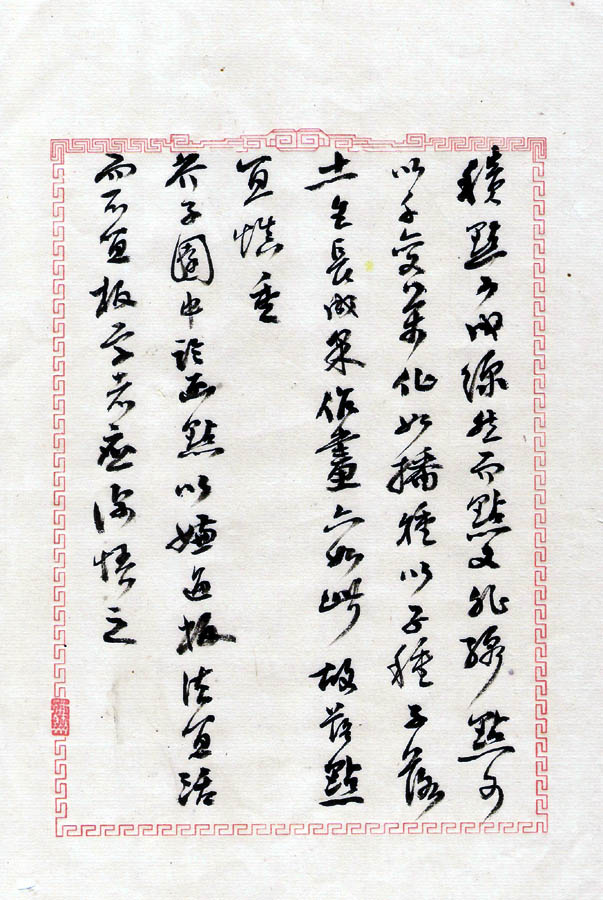 積點可成線然而點又非線點可
以千變萬化如播種以子種子落
土生長成果作畫亦如此故落點
宜慎重
芥子園中論画點以嫌板法宜活
而不宜板字者應深悟之